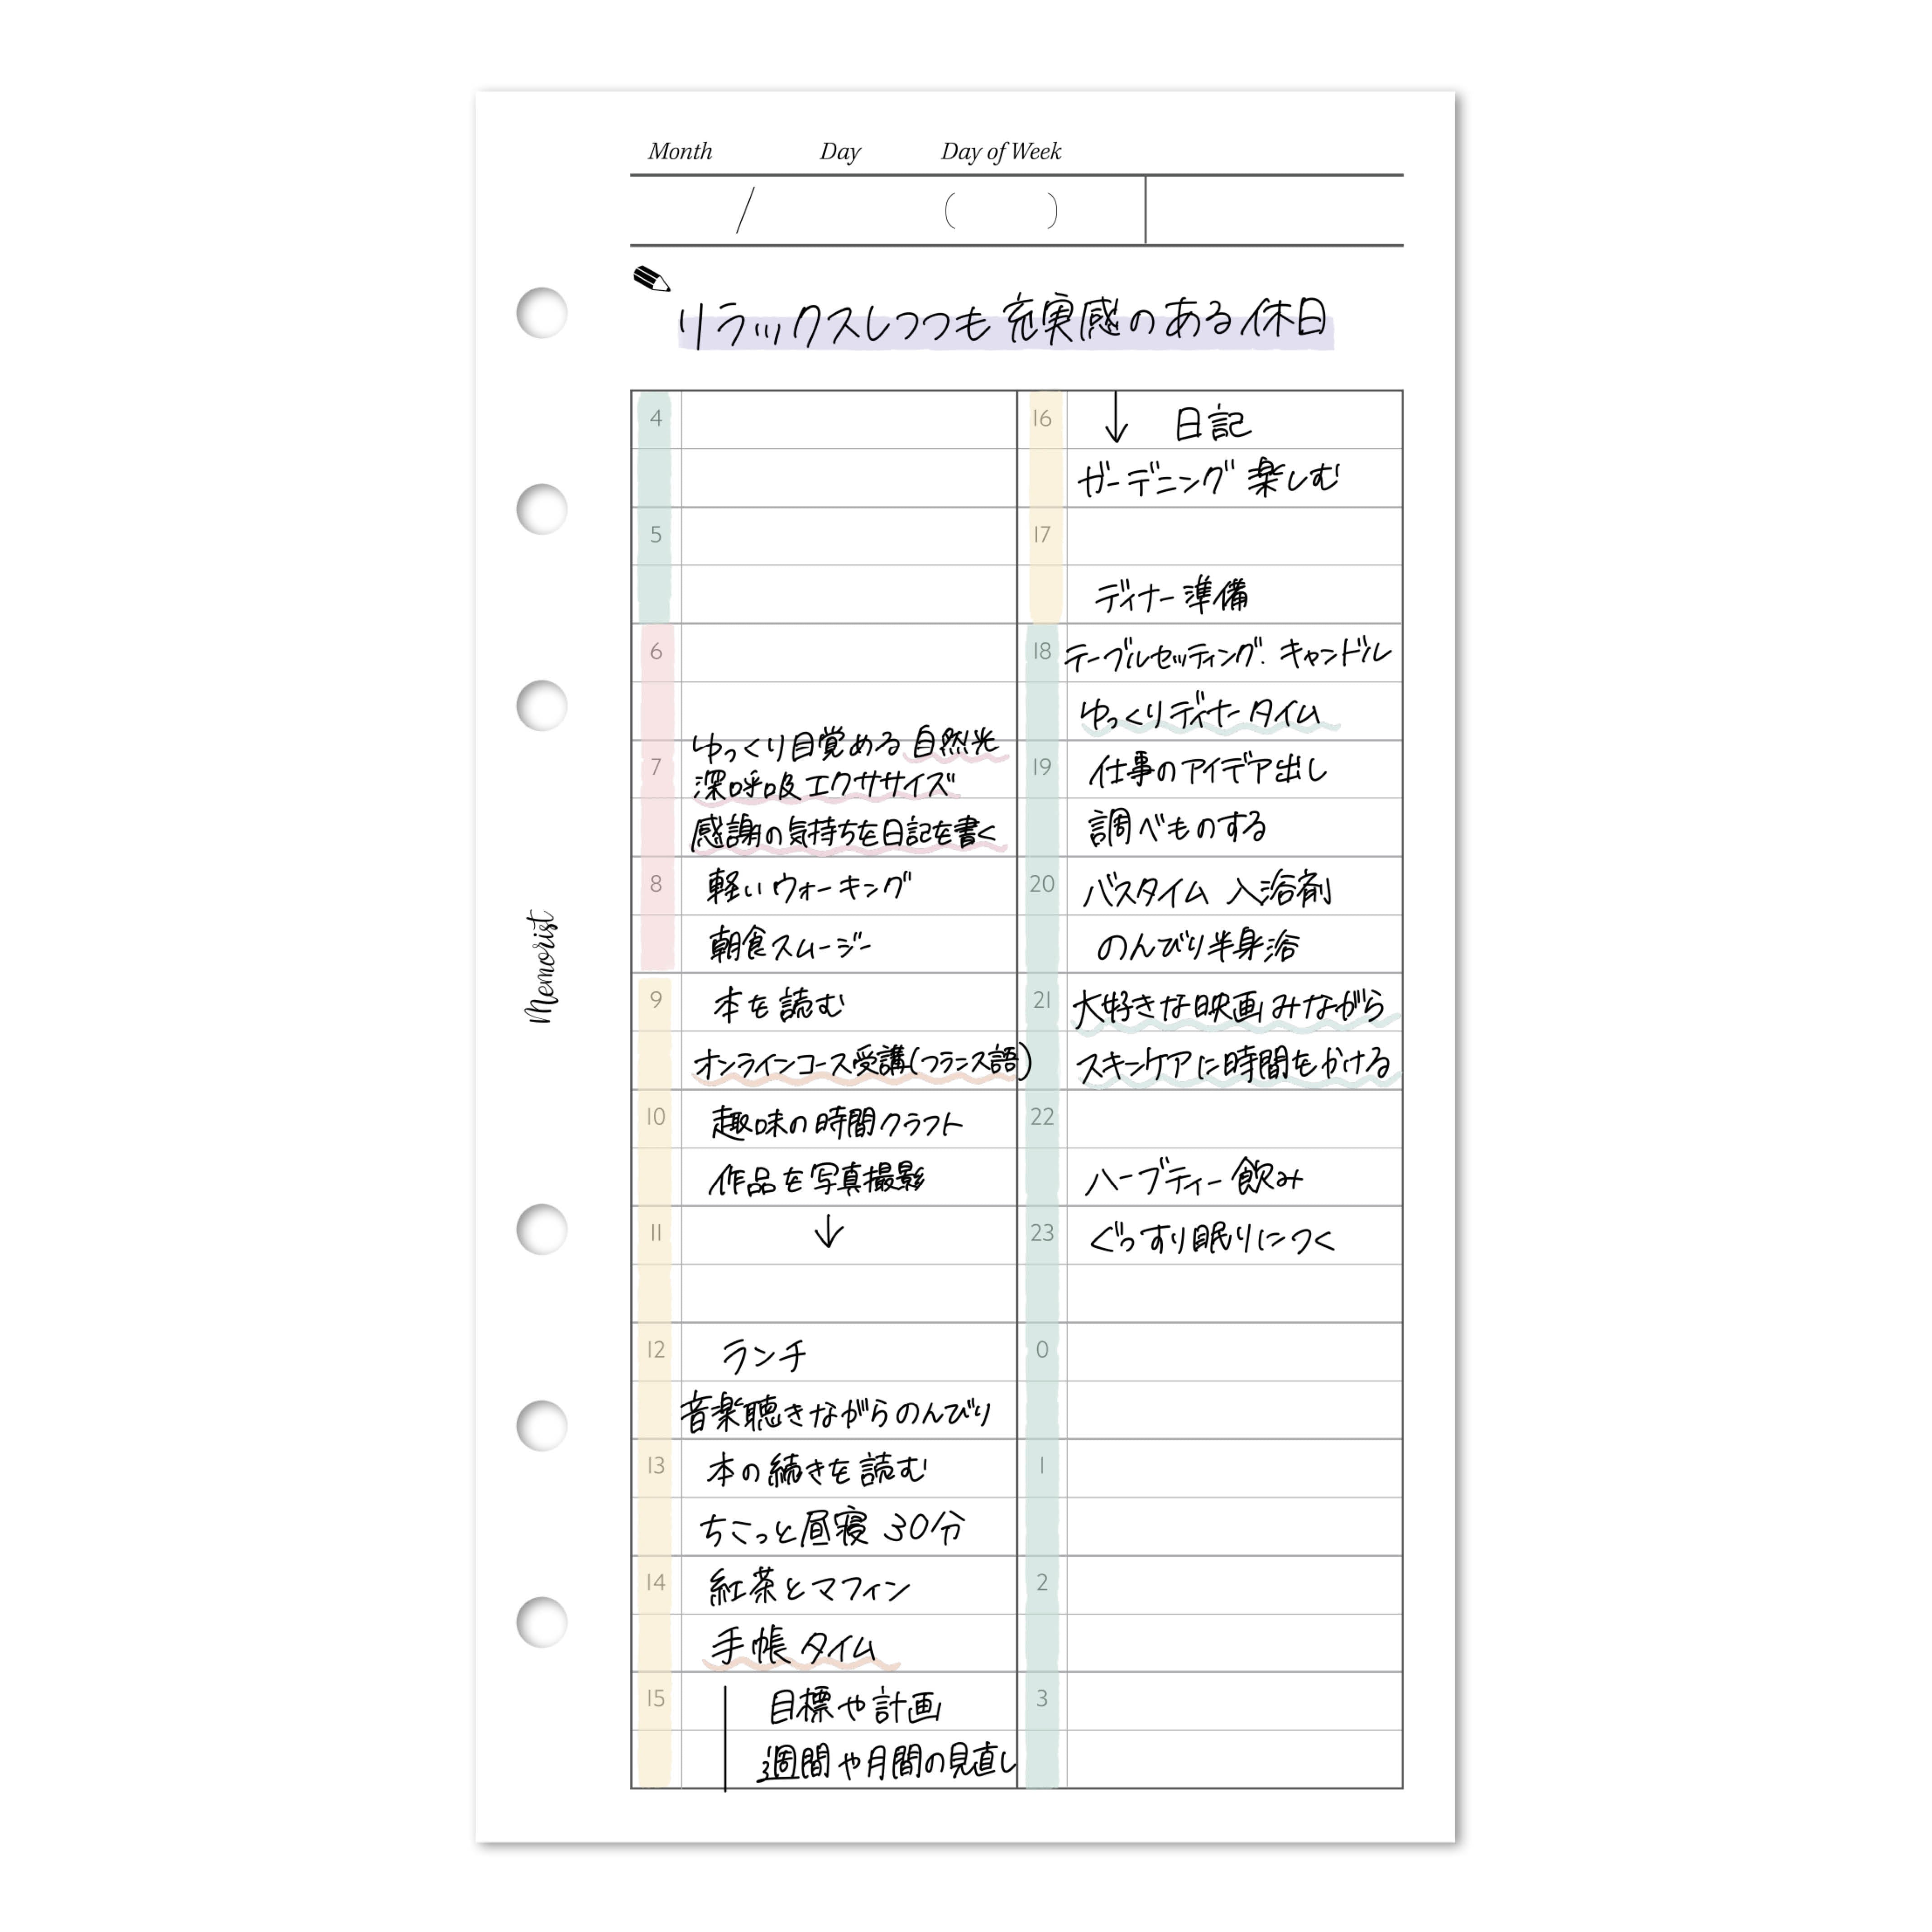 Month Day Day of Week
/ ( )
リラックスしつつも充実感のある休日
4
5
6
ゆっくり目覚める 自然光
7
深呼吸エクササイズ
感謝の気持ちを日記を書く
8 軽いウォーキング
朝食スムージー
9 本を読む
オンラインコース受講(フランス語)
10 趣味の時間クラフト
作品を写真撮影
11 ↓
12 ランチ
音楽聴きながらのんびり
13 本の続きを読む
ちこっと昼寝 30分
14 紅茶とマフィン
手帳タイム
15 目標や計画
週間や月間の見直し
16 ↓ 日記
ガーデニング 楽しむ
17
ディナー準備
18 テーブルセッティング.キャンドル
ゆっくりディナータイム
19 仕事のアイデア出し
調べものする
20 バスタイム 入浴剤
のんびり半身浴
21 大好きな映画みながら
スキンケアに時間をかける
22
ハーブティー飲み
23 ぐっすり眠りにつく
0
1
2
3
Memorist